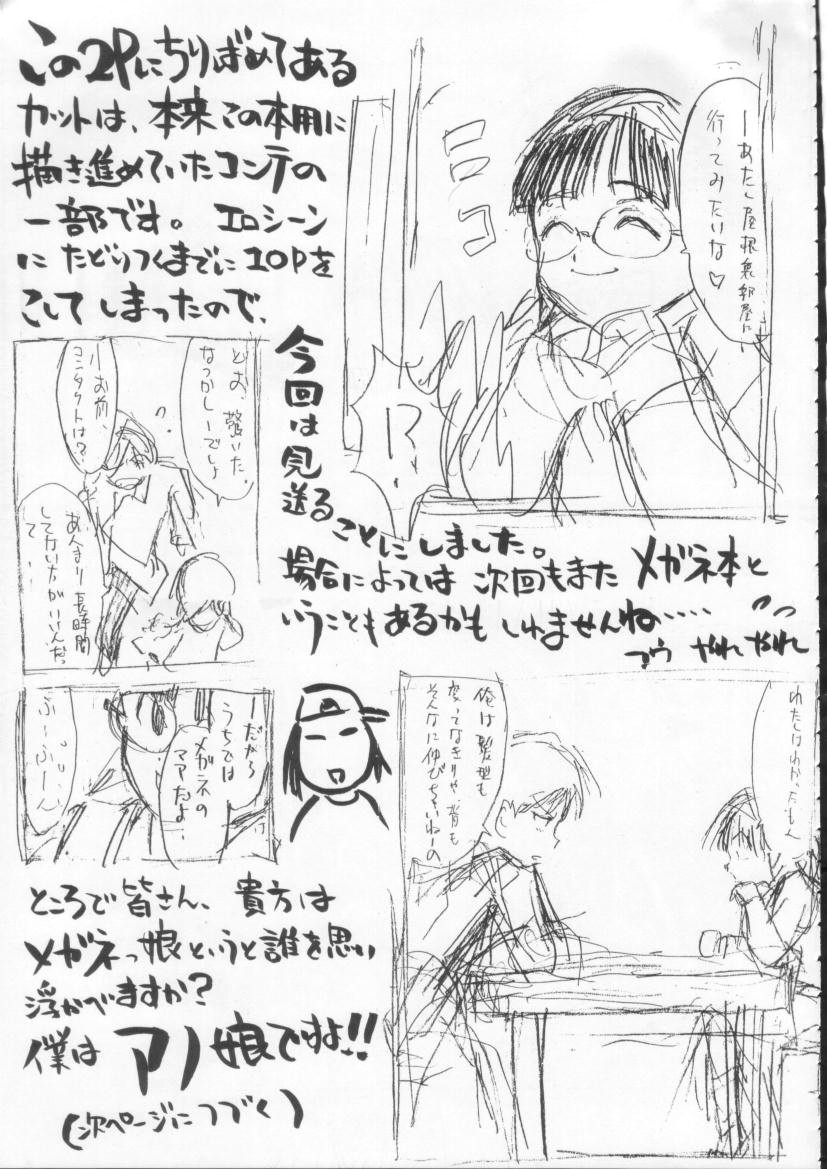 この2Pにちりばめてある
カットは、本来この本用に
描き進めていたコンテの
一部です。エロシーン
にたどりつくまでに10Pを
こしてしまったので、
今回は見送る
ことにしました。
場合によっては次回もまたメガネ本と
いうこともあるかもしれませんね・・・・
フウ やれやれ
ーあたし屋根裏部屋に
行ってみたいな♡
ニコ
!?
とお、驚いた。
なつかしーでしょ
ーお前、
コンタクトは?
あんまり長時間
してない方がいいんだ。
て
ーだから
うちでは
メガネの
ママだよ
ふーふーん
俺は髪型も
変ってなきりゃ背も
そんなに伸びちゃいねーの
わたしはわかったもん
ところで皆さん、貴方は
メガネっ娘というと誰を思い
浮かべますか?
僕はアノ娘ですよ!!
(次ページにつづく)